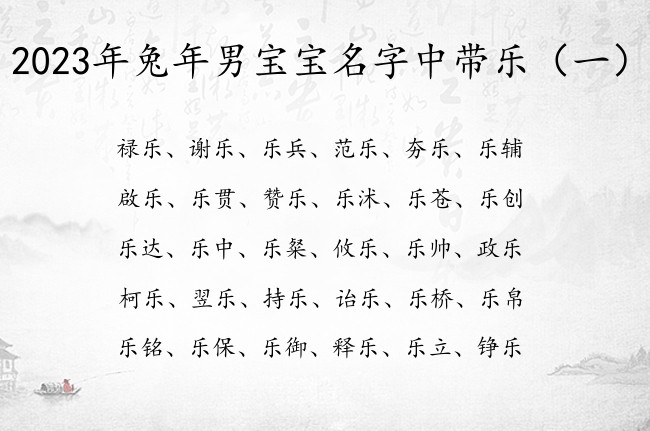 2023年兔年男宝宝名字中带乐（一）
禄乐、谢乐、乐兵、范乐、夯乐、乐辅
啟乐、乐贯、赞乐、乐沭、乐苍、乐创
乐达、乐中、乐粲、攸乐、乐帅、政乐
柯乐、翌乐、持乐、诒乐、乐桥、乐帛
乐铭、乐保、乐御、释乐、乐立、铮乐